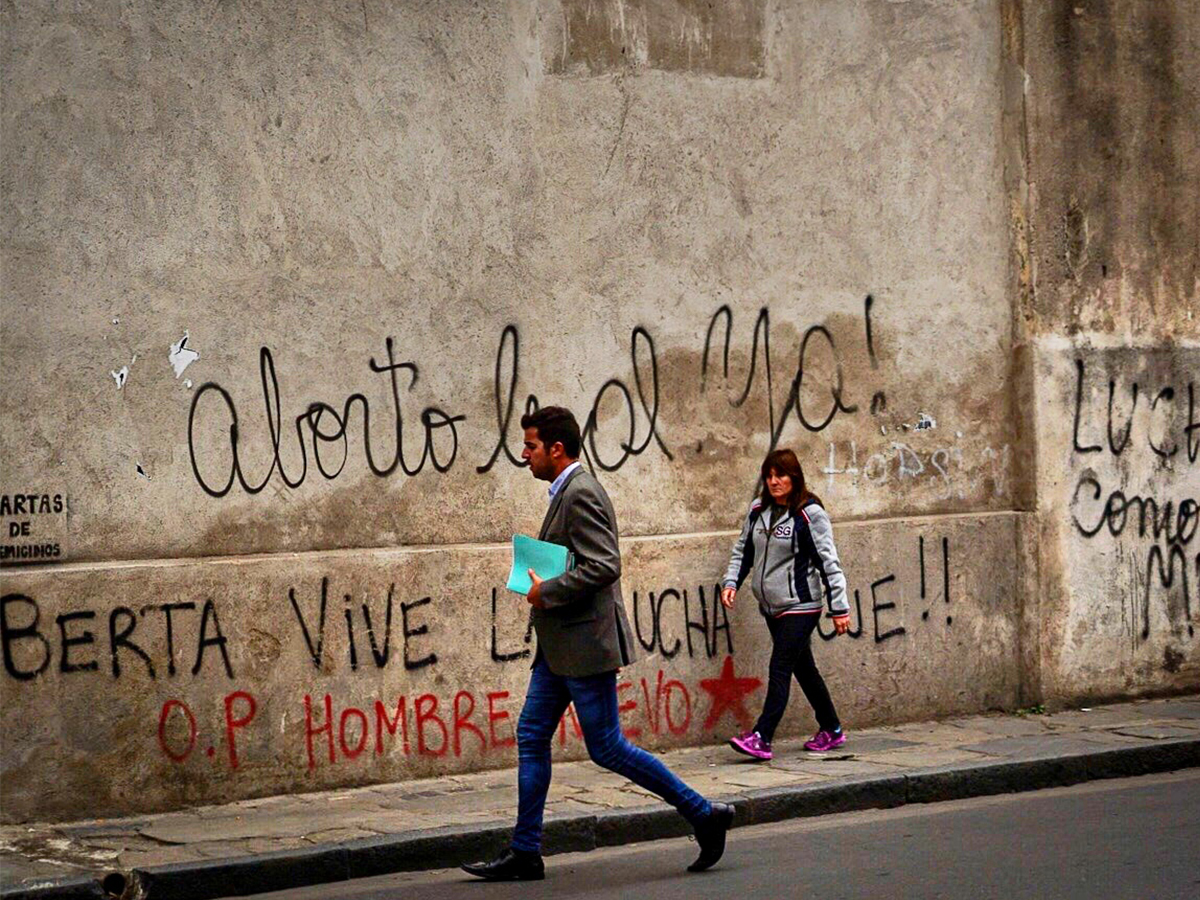 aborto legal Ya!
HoDSiM
ARTAS
DE
EMICIDIOS
BERTA ViVE LA LUCHA SIGUE!!
O.P HOMBRE NUEVO
LUCH
Como
SG